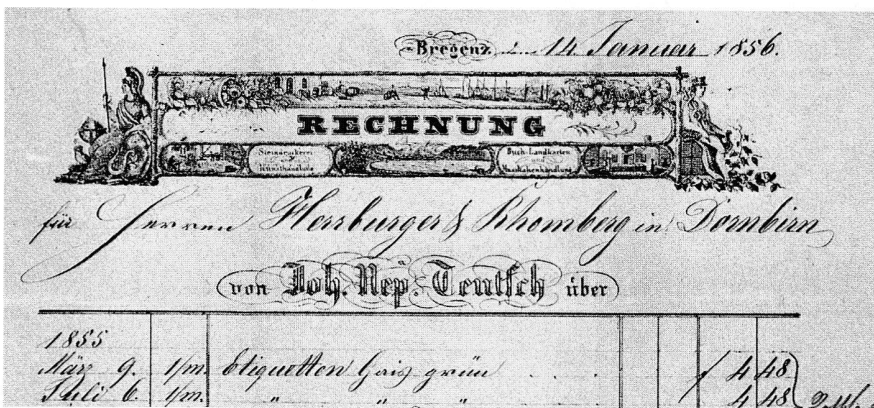 Bregenz den 14. Januar 1856.
RECHNUNG
Steindruckerei und Kunsthandlung
Buch-Landkarten und Musikalienhandlung
für Herren Herrburger & Rhomberg in Dornbirn
von Joh. Nep. Teutsch über
1855
März 9. 1/m. Etiquetten grün f 4 48
Juli 6. 1/m. " " " 4 48